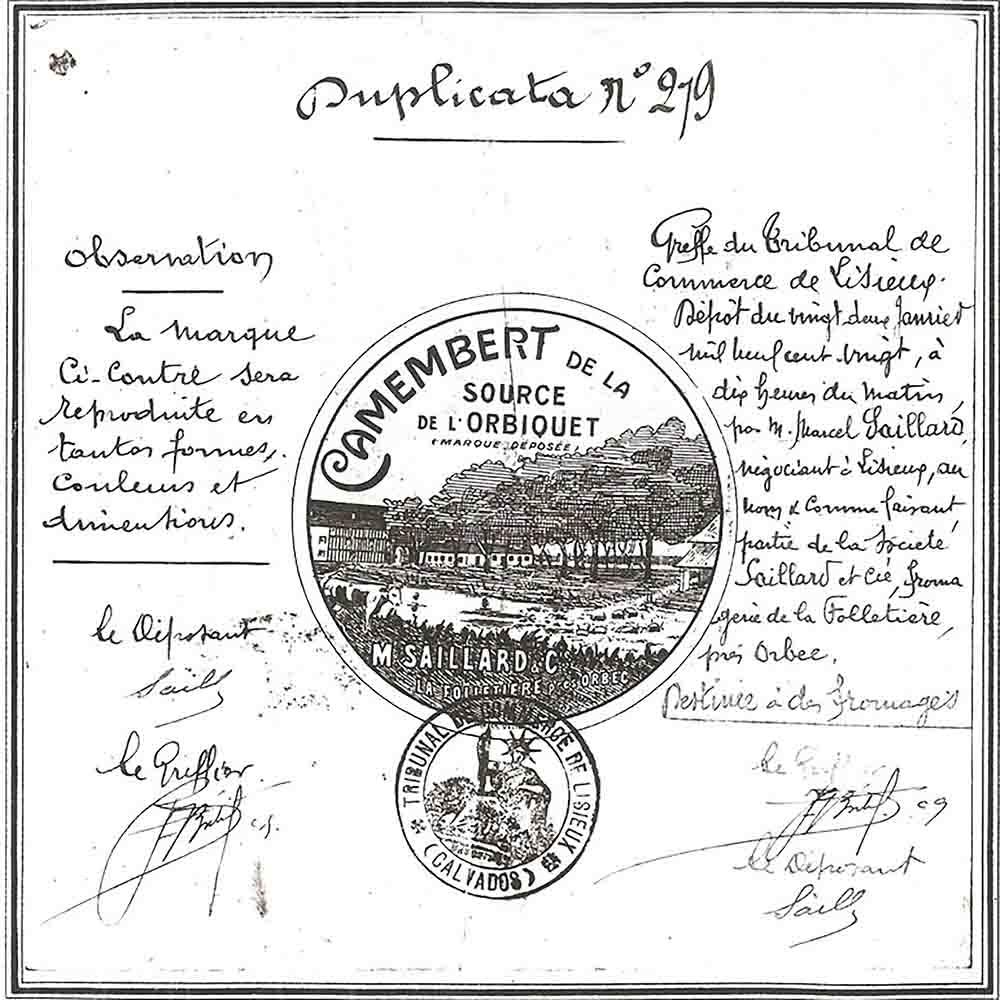 Duplicata n° 279
Observation
La marque
Ci-Contre sera
reproduite en
toutes formes,
couleurs et
dimentions.
Le Déposant
Saill
Le Greffier
CAMEMBERT DE LA
SOURCE
DE L'ORBIQUET
(MARQUE DÉPOSÉE)
M. SAILLARD & C
LA FOLLETIERE près ORBEC
TRIBUNAL DE COMMERCE DE LISIEUX
(CALVADOS)
Greffe du Tribunal de
Commerce de Lisieux.
Dépôt du vingt deux Janvier
mil neuf cent vingt, à
dix heures du matin,
par M. Marcel Saillard,
négociant à Lisieux, au
nom & comme faisant
partie de la Société
Saillard et Cie, froma
gerie de la Folletière,
près Orbec.
Destinée à des fromages
Le Greffier
Le Déposant
Saill